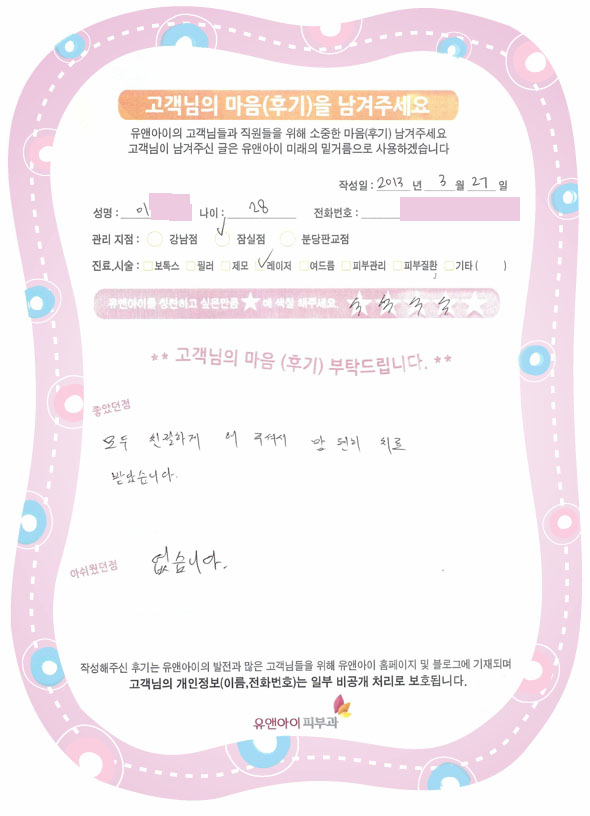 고객님의 마음(후기)을 남겨주세요
유앤아이의 고객님들과 직원들을 위해 소중한 마음(후기) 남겨주세요
고객님이 남겨주신 글은 유앤아이 미래의 밑거름으로 사용하겠습니다
작성일 : 2013 년 3 월 27 일
성명 : 이 나이 : 28 전화번호 :
관리 지점 : 강남점 잠실점 분당판교점
진료,시술 : 보톡스 필러 제모 레이저 여드름 피부관리 피부질환 기타 ( )
유앤아이를 칭찬하고 싶은만큼 ★ 에 색칠 해주세요.
** 고객님의 마음 (후기) 부탁드립니다. **
좋았던점
모두 친절하게 해 주셔서 맘 편히 치료
받았습니다.
아쉬웠던점 없습니다.
작성해주신 후기는 유앤아이의 발전과 많은 고객님들을 위해 유앤아이 홈페이지 및 블로그에 기재되며
고객님의 개인정보(이름,전화번호)는 일부 비공개 처리로 보호됩니다.
유앤아이 피부과